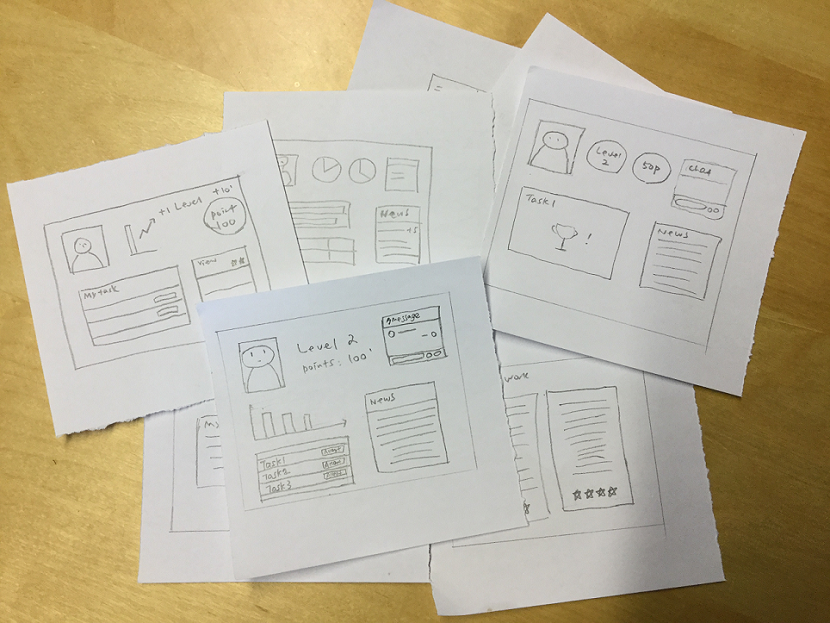 +1 Level +10'
point
100
My task
View
News
+5
Level
2
50p
chat
Task1
!
News
Level 2
points: 100'
message
News
Task1
Task2
Task3
My
work